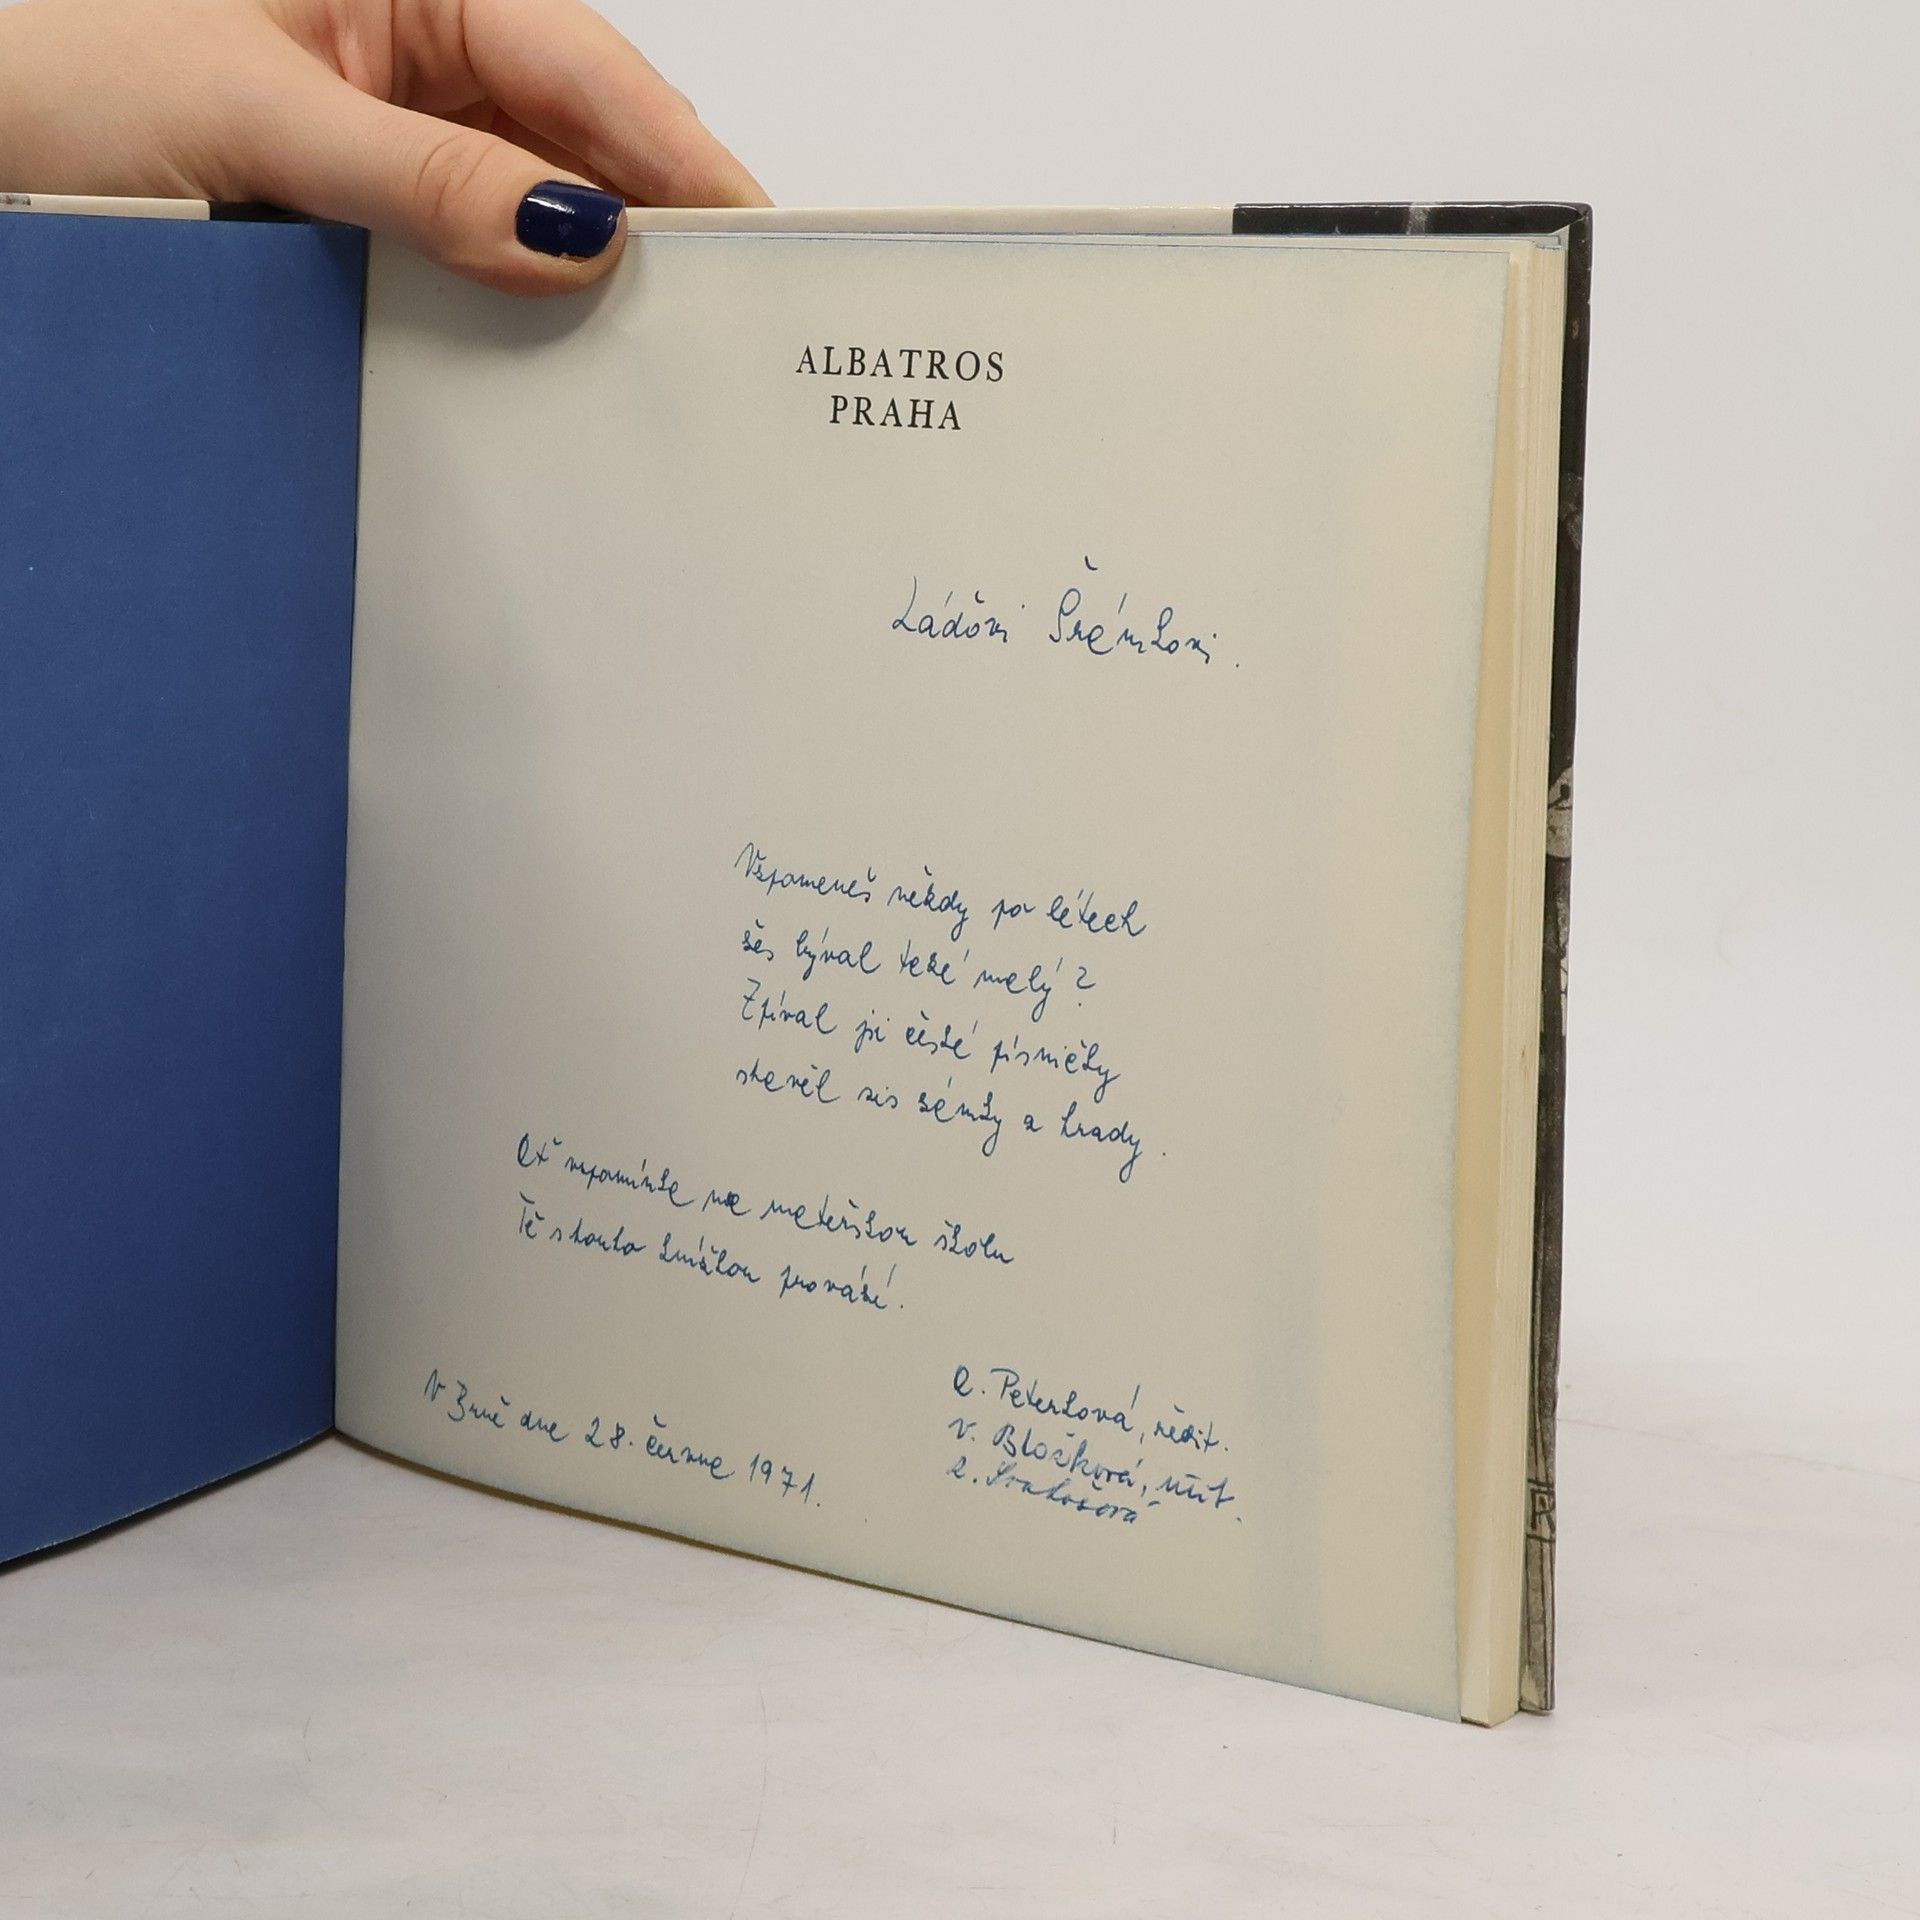 ALBATROS
PRAHA
Láďovi Šrámkovi.
Vzpomeneš někdy po létech
žes býval také malý?
Zpíval jsi české písničky
stavěl sis zámky a hrady.
Ať vzpomínka na mateřskou školu
Tě s touto knížkou provází.
V Brně dne 28. června 1971.
A. Peterková, ředit.
V. Blažková, učit.